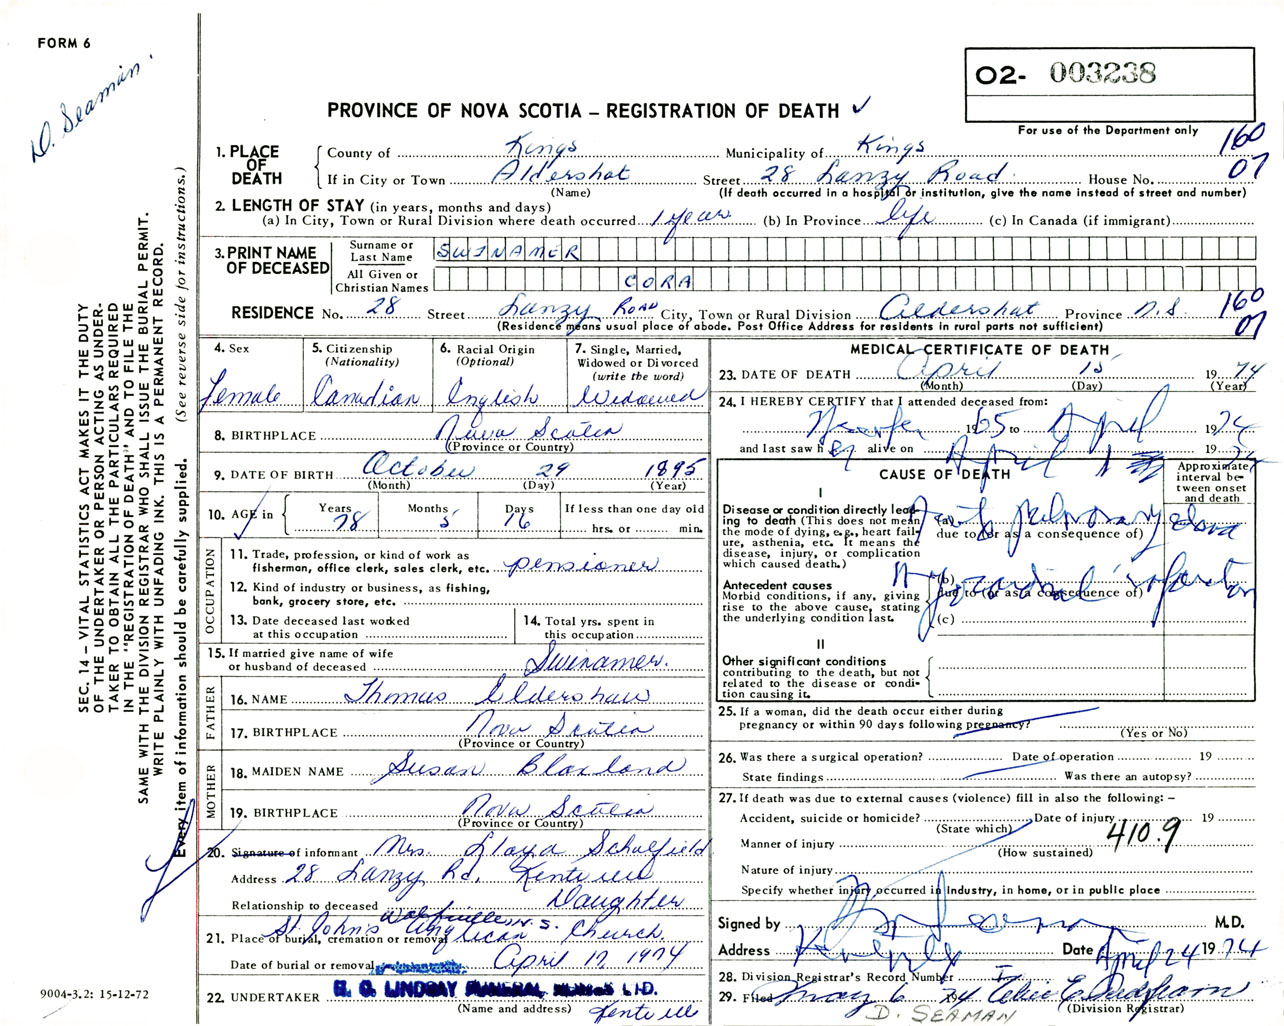 FORM 6
D. Seaman.
O2- 003238
For use of the Department only
PROVINCE OF NOVA SCOTIA – REGISTRATION OF DEATH ✓
160
07
1. PLACE OF DEATH
County of Kings Municipality of Kings
If in City or Town Aldershot Street 28 Lanzy Road House No.
(Name) (If death occurred in a hospital or institution, give the name instead of street and number)
2. LENGTH OF STAY (in years, months and days)
(a) In City, Town or Rural Division where death occurred 1 year (b) In Province life (c) In Canada (if immigrant)
3. PRINT NAME OF DECEASED
Surname or Last Name SWINAMER
All Given or Christian Names CORA
RESIDENCE No. 28 Street Lanzy ROAD City, Town or Rural Division Aldershot Province N.S. 160
07
(Residence means usual place of abode. Post Office Address for residents in rural parts not sufficient)
4. Sex
Female
5. Citizenship
(Nationality)
Canadian
6. Racial Origin
(Optional)
English
7. Single, Married, Widowed or Divorced
(write the word)
Widowed
8. BIRTHPLACE Nova Scotia
(Province or Country)
9. DATE OF BIRTH October 29 1895
(Month) (Day) (Year)
10. AGE in
Years 78 Months 5 Days 16 If less than one day old
hrs. or min.
OCCUPATION
11. Trade, profession, or kind of work as
fisherman, office clerk, sales clerk, etc. pensioner
12. Kind of industry or business, as fishing,
bank, grocery store, etc.
13. Date deceased last worked
at this occupation
14. Total yrs. spent in
this occupation
15. If married give name of wife
or husband of deceased Swinamer.
FATHER
16. NAME Thomas Eldershaw
17. BIRTHPLACE Nova Scotia
(Province or Country)
MOTHER
18. MAIDEN NAME Susan Blaxland
19. BIRTHPLACE Nova Scotia
(Province or Country)
20. Signature of informant Mrs. Lloyd Schofield
Address 28 Lanzy Rd. Kentville
Relationship to deceased Daughter
Wolfville N.S.
21. Place of burial, cremation or removal St. John's Anglican Church
Date of burial or removal April 17, 1974
22. UNDERTAKER H. C. LINDSAY FUNERAL HOMES LTD.
(Name and address) Kentville
MEDICAL CERTIFICATE OF DEATH
23. DATE OF DEATH April 15 1974
(Month) (Day) (Year)
24. I HEREBY CERTIFY that I attended deceased from:
1965 to April 1974
and last saw her alive on April 1974
CAUSE OF DEATH
Approximate interval between onset and death
I
Disease or condition directly leading to death (This does not mean the mode of dying, e.g., heart failure, asthenia, etc. It means the disease, injury, or complication which caused death.)
(a) Acute pulmonary edema
due to (or as a consequence of)
Antecedent causes
Morbid conditions, if any, giving rise to the above cause, stating the underlying condition last.
(b) Myocardial infarction
due to (or as a consequence of)
(c)
II
Other significant conditions
contributing to the death, but not related to the disease or condition causing it.
25. If a woman, did the death occur either during
pregnancy or within 90 days following pregnancy?
(Yes or No)
26. Was there a surgical operation? Date of operation 19
State findings Was there an autopsy?
27. If death was due to external causes (violence) fill in also the following: –
Accident, suicide or homicide? Date of injury 19
(State which)
410.9
Manner of injury
(How sustained)
Nature of injury
Specify whether injury occurred in Industry, in home, or in public place
Signed by M.D.
Address Date April 24 1974
28. Division Registrar's Record Number
29. Filed May 6 74
(Division Registrar)
D. SEAMAN
SEC. 14 – VITAL STATISTICS ACT MAKES IT THE DUTY
OF THE UNDERTAKER OR PERSON ACTING AS UNDER-
TAKER TO OBTAIN ALL THE PARTICULARS REQUIRED
IN THE "REGISTRATION OF DEATH" AND TO FILE THE
SAME WITH THE DIVISION REGISTRAR WHO SHALL ISSUE THE BURIAL PERMIT.
WRITE PLAINLY WITH UNFADING INK. THIS IS A PERMANENT RECORD.
Every item of information should be carefully supplied. (See reverse side for instructions.)
9004-3.2: 15-12-72